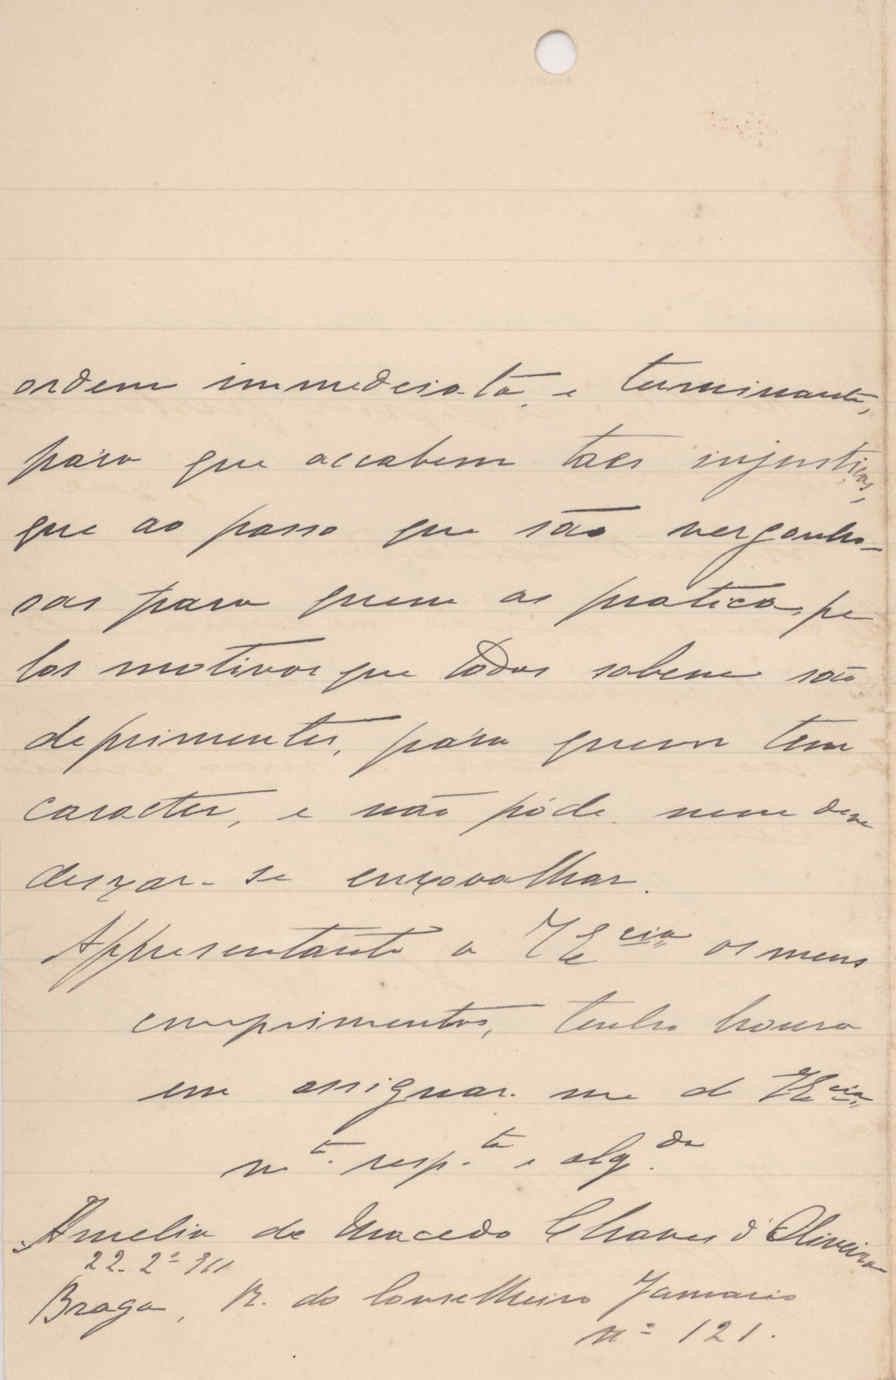 ordem immedeiata e terminante,
para que accabem taes injustiças,
que ao passo que são vergonho-
sas para quem as pratica, pe
los motivos que todos sabem são
deprimentes, para quem tem
caracter, e não póde nem deve
deixar-se enxovalhar.
Appresentando a V Ecia os meus
cumprimentos, tenho honra
em assignar-me de V Ecia
mto. respta e obgda
Amelia de Macedo Chaves d'Oliveira
22-2º-911
Braga, R. do Conselheiro Januario
nº 121.